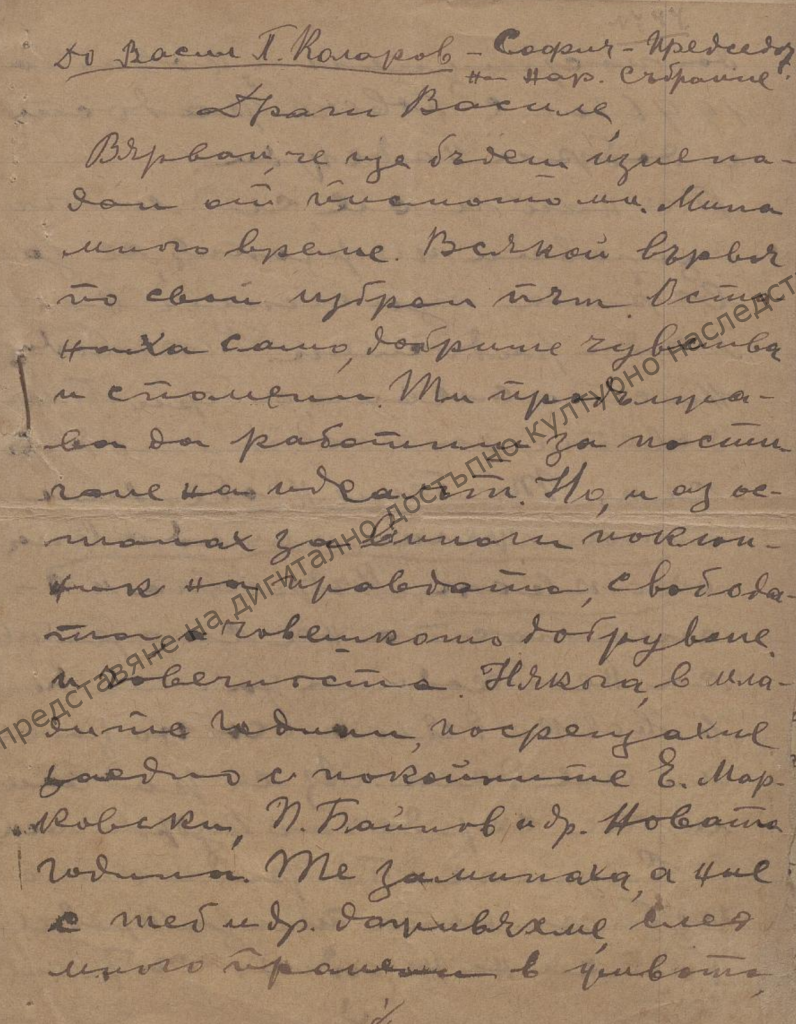 До Васил П. Коларов – София – Председ.
на Нар. Събрание
Драги Василе,
Вярвам, че ще бъдеш изнена-
дан от писмото ми. Мина
много време. Всякой вървя
по свой избран път. Оста
наха само, добрите чувства
и спомени. Ти продължа-
ва да работиш за пости
гане на идеалът. Но, и аз ос-
танах за винаги поклон-
ник на правдата, свобода-
та, човешкото добруване
и човечността. Някога, в мла-
дите години, посрещахме
заедно с покойните Е. Мар-
ковски, П. Баинов и др. Новата
година. Те заминаха, а ние
с теб и др. доживяхме, след
много промени в живота,
представяне на дигитално достъпно културно наследство